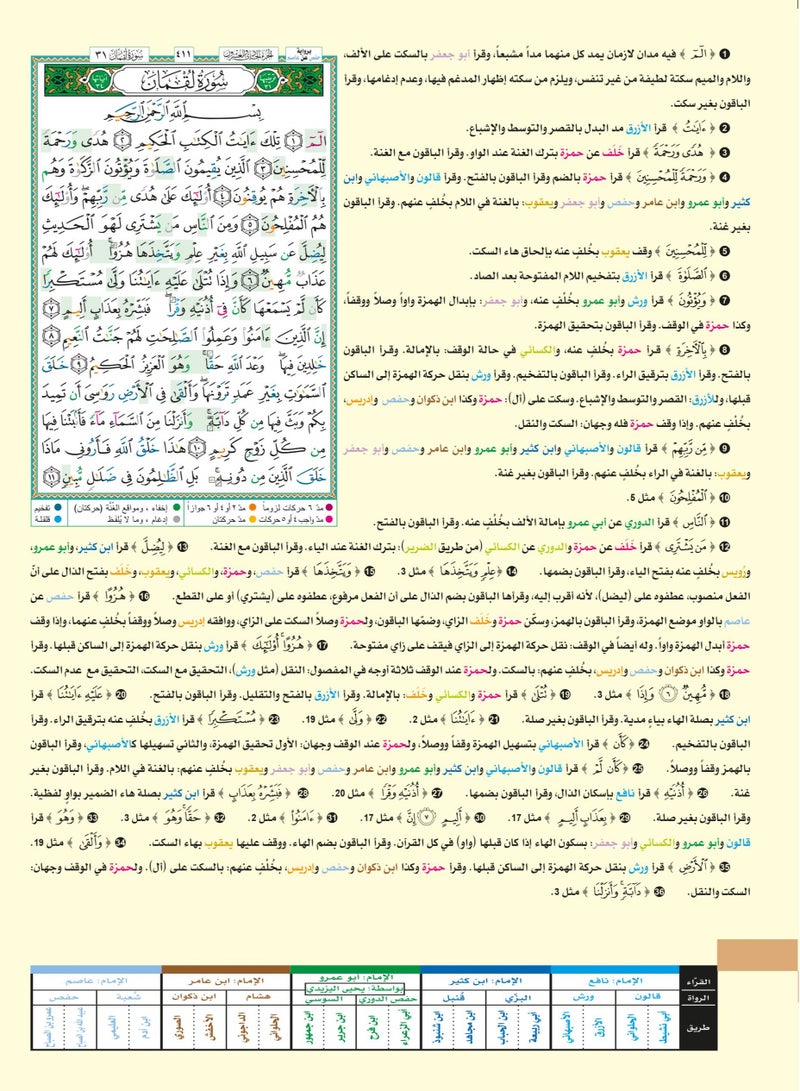 سُورَةُ لُقْمَان ٣١
٤١١
الجزء الحادي والعشرون
برواية حفص عن عاصم
سُورَةُ لُقْمَانَ
بِسْمِ اللَّهِ الرَّحْمَٰنِ الرَّحِيمِ
الٓمٓ ١ تِلْكَ ءَايَٰتُ الْكِتَٰبِ الْحَكِيمِ ٢ هُدًى وَرَحْمَةً
لِّلْمُحْسِنِينَ ٣ الَّذِينَ يُقِيمُونَ الصَّلَوٰةَ وَيُؤْتُونَ الزَّكَوٰةَ وَهُم
بِالْآخِرَةِ هُمْ يُوقِنُونَ ٤ أُولَٰئِكَ عَلَىٰ هُدًى مِّن رَّبِّهِمْ وَأُولَٰئِكَ
هُمُ الْمُفْلِحُونَ ٥ وَمِنَ النَّاسِ مَن يَشْتَرِي لَهْوَ الْحَدِيثِ
لِيُضِلَّ عَن سَبِيلِ اللَّهِ بِغَيْرِ عِلْمٍ وَيَتَّخِذَهَا هُزُوًا أُولَٰئِكَ لَهُمْ
عَذَابٌ مُّهِينٌ ٦ وَإِذَا تُتْلَىٰ عَلَيْهِ ءَايَٰتُنَا وَلَّىٰ مُسْتَكْبِرًا
كَأَن لَّمْ يَسْمَعْهَا كَأَنَّ فِي أُذُنَيْهِ وَقْرًا فَبَشِّرْهُ بِعَذَابٍ أَلِيمٍ ٧
إِنَّ الَّذِينَ ءَامَنُوا وَعَمِلُوا الصَّٰلِحَٰتِ لَهُمْ جَنَّٰتُ النَّعِيمِ ٨
خَٰلِدِينَ فِيهَا وَعْدَ اللَّهِ حَقًّا وَهُوَ الْعَزِيزُ الْحَكِيمُ ٩ خَلَقَ
السَّمَٰوَٰتِ بِغَيْرِ عَمَدٍ تَرَوْنَهَا وَأَلْقَىٰ فِي الْأَرْضِ رَوَٰسِيَ أَن تَمِيدَ
بِكُمْ وَبَثَّ فِيهَا مِن كُلِّ دَابَّةٍ وَأَنزَلْنَا مِنَ السَّمَاءِ مَاءً فَأَنبَتْنَا فِيهَا
مِن كُلِّ زَوْجٍ كَرِيمٍ ١٠ هَٰذَا خَلْقُ اللَّهِ فَأَرُونِي مَاذَا
خَلَقَ الَّذِينَ مِن دُونِهِ بَلِ الظَّٰلِمُونَ فِي ضَلَٰلٍ مُّبِينٍ ١١
مدّ ٦ حركات لزوماً مدّ ٢ أو ٤ أو ٦ جوازاً إخفاء، ومواقع الغُنَّة (حركتان) تفخيم
مدّ واجب ٤ أو ٥ حركات مدّ حركتان إدغام، وما لا يُلفَظ قلقلة
1 ﴿ الٓمٓ ﴾ فيه مدان لازمان يمد كل منهما مداً مشبعاً، وقرأ أبو جعفر بالسكت على الألف،
واللام والميم سكتة لطيفة من غير تنفس، ويلزم من سكته إظهار المدغم فيها، وعدم إدغامها، وقرأ
الباقون بغير سكت.
2 ﴿ ءَايَٰتُ ﴾ قرأ الأزرق مد البدل بالقصر والتوسط والإشباع.
3 ﴿ هُدًى وَرَحْمَةً ﴾ قرأ خَلَف عن حمزة بترك الغنة عند الواو. وقرأ الباقون مع الغنة.
4 ﴿ وَرَحْمَةً لِّلْمُحْسِنِينَ ﴾ قرأ حمزة بالضم وقرأ الباقون بالفتح. وقرأ قالون والأصبهاني وابن
كثير وأبو عمرو وابن عامر وحفص وأبو جعفر ويعقوب: بالغنة في اللام بخُلفٍ عنهم. وقرأ الباقون
بغير غنة.
5 ﴿ لِّلْمُحْسِنِينَ ﴾ وقف يعقوب بخُلف عنه بإلحاق هاء السكت.
6 ﴿ الصَّلَوٰةَ ﴾ قرأ الأزرق بتفخيم اللام المفتوحة بعد الصاد.
7 ﴿ وَيُؤْتُونَ ﴾ قرأ ورش وأبو عمرو بخُلفٍ عنه، وأبو جعفر: بإبدال الهمزة واواً وصلاً ووقفاً،
وكذا حمزة في الوقف. وقرأ الباقون بتحقيق الهمزة.
8 ﴿ بِالْآخِرَةِ ﴾ قرأ حمزة بخُلفٍ عنه، والكسائي في حالة الوقف: بالإمالة. وقرأ الباقون
بالفتح. وقرأ الأزرق بترقيق الراء. وقرأ الباقون بالتفخيم. وقرأ ورش بنقل حركة الهمزة إلى الساكن
قبلها، وللأزرق: القصر والتوسط والإشباع. وسكت على (أل): حمزة وكذا ابن ذكوان وحفص وإدريس،
بخُلفٍ عنهم. وإذا وقف حمزة فله وجهان: السكت والنقل.
9 ﴿ مِّن رَّبِّهِمْ ﴾ قرأ قالون والأصبهاني وابن كثير وأبو عمرو وابن عامر وحفص وأبو جعفر
ويعقوب: بالغنة في الراء بخُلفٍ عنهم. وقرأ الباقون بغير غنة.
10 ﴿ الْمُفْلِحُونَ ﴾ مثل 5.
11 ﴿ النَّاسِ ﴾ قرأ الدوري عن أبي عمرو بإمالة الألف بخُلفٍ عنه. وقرأ الباقون بالفتح.
12 ﴿ مَن يَشْتَرِي ﴾ قرأ خَلَف عن حمزة والدوري عن الكسائي (من طريق الضرير): بترك الغنة عند الياء. وقرأ الباقون مع الغنة. 13 ﴿ لِيُضِلَّ ﴾ قرأ ابن كثير، وأبو عمرو،
ورُويس بخُلفٍ عنه بفتح الياء، وقرأ الباقون بضمها. 14 ﴿ عِلْمٍ وَيَتَّخِذَهَا ﴾ مثل 3. 15 ﴿ وَيَتَّخِذَهَا ﴾ قرأ حفص، وحمزة، والكسائي، ويعقوب، وخَلَف بفتح الذال على أنّ
الفعل منصوب، عطفوه على (ليضل)، لأنه أقرب إليه، وقرأها الباقون بضم الذال على أن الفعل مرفوع، عطفوه على (يشتري) أو على القطع. 16 ﴿ هُزُوًا ﴾ قرأ حفص عن
عاصم بالواو موضع الهمزة، وقرأ الباقون بالهمز، وسكّن حمزة وخَلَف الزاي، وضمّها الباقون، ولحمزة وصلاً السكت على الزاي، ووافقه إدريس وصلاً ووقفاً بخُلفٍ عنهما، وإذا وقف
حمزة أبدل الهمزة واواً. وله أيضاً في الوقف: نقل حركة الهمزة إلى الزاي فيقف على زاي مفتوحة. 17 ﴿ هُزُوًا أُولَٰئِكَ ﴾ قرأ ورش بنقل حركة الهمزة إلى الساكن قبلها. وقرأ
حمزة وكذا ابن ذكوان وحفص وإدريس، بخُلفٍ عنهم: بالسكت. ولحمزة عند الوقف ثلاثة أوجه في المفصول: النقل (مثل ورش)، التحقيق مع السكت، التحقيق مع عدم السكت.
18 ﴿ مُّهِينٌ ٦ وَإِذَا ﴾ مثل 3. 19 ﴿ تُتْلَىٰ ﴾ قرأ حمزة والكسائي وخَلَف: بالإمالة. وقرأ الأزرق بالفتح والتقليل. وقرأ الباقون بالفتح. 20 ﴿ عَلَيْهِ ءَايَٰتُنَا ﴾ قرأ
ابن كثير بصلة الهاء بياءٍ مدية. وقرأ الباقون بغير صلة. 21 ﴿ ءَايَٰتُنَا ﴾ مثل 2. 22 ﴿ وَلَّىٰ ﴾ مثل 19. 23 ﴿ مُسْتَكْبِرًا ﴾ قرأ الأزرق بخُلفٍ عنه بترقيق الراء. وقرأ
الباقون بالتفخيم. 24 ﴿ كَأَن ﴾ قرأ الأصبهاني بتسهيل الهمزة وقفاً ووصلاً، ولحمزة عند الوقف وجهان: الأول تحقيق الهمزة، والثاني تسهيلها كالأصبهاني، وقرأ الباقون
بالهمز وقفاً ووصلاً. 25 ﴿ كَأَن لَّمْ ﴾ قرأ قالون والأصبهاني وابن كثير وأبو عمرو وابن عامر وحفص وأبو جعفر ويعقوب بخُلفٍ عنهم: بالغنة في اللام. وقرأ الباقون بغير
غنة. 26 ﴿ أُذُنَيْهِ ﴾ قرأ نافع بإسكان الذال، وقرأ الباقون بضمها. 27 ﴿ أُذُنَيْهِ وَقْرًا ﴾ مثل 20. 28 ﴿ فَبَشِّرْهُ بِعَذَابٍ ﴾ قرأ ابن كثير بصلة هاء الضمير بواوٍ لفظية.
وقرأ الباقون بغير صلة. 29 ﴿ بِعَذَابٍ أَلِيمٍ ﴾ مثل 17. 30 ﴿ أَلِيمٍ ٧ إِنَّ ﴾ مثل 17. 31 ﴿ ءَامَنُوا ﴾ مثل 2. 32 ﴿ حَقًّا وَهُوَ ﴾ مثل 3. 33 ﴿ وَهُوَ ﴾ قرأ
قالون وأبو عمرو والكسائي وأبو جعفر: بسكون الهاء إذا كان قبلها (واو) في كل القرآن. وقرأ الباقون بضم الهاء. ووقف عليها يعقوب بهاء السكت. 34 ﴿ وَأَلْقَىٰ ﴾ مثل 19.
35 ﴿ الْأَرْضِ ﴾ قرأ ورش بنقل حركة الهمزة إلى الساكن قبلها. وقرأ حمزة وكذا ابن ذكوان وحفص وإدريس، بخُلفٍ عنهم: بالسكت على (أل). ولحمزة في الوقف وجهان:
السكت والنقل. 36 ﴿ دَابَّةٍ وَأَنزَلْنَا ﴾ مثل 3.
القرّاء الإمام: نافع الإمام: ابن كثير الإمام: أبو عمرو بواسطة: يحيى اليزيدي الإمام: ابن عامر الإمام: عاصم
الرواة قالون ورش البزّي قُنبل حفص الدوري السوسي هشام ابن ذكوان شُعبة حفص
طريق أبي نشيط الحلواني الأزرق الأصبهاني أبي ربيعة ابن الحباب ابن مجاهد ابن شنبوذ أبي الزعراء ابن فرح ابن جرير ابن جمهور الحلواني الداجوني الأخفش الصوري ابن آدم العليمي عبيد الله بن الصباح عمرو بن الصباح